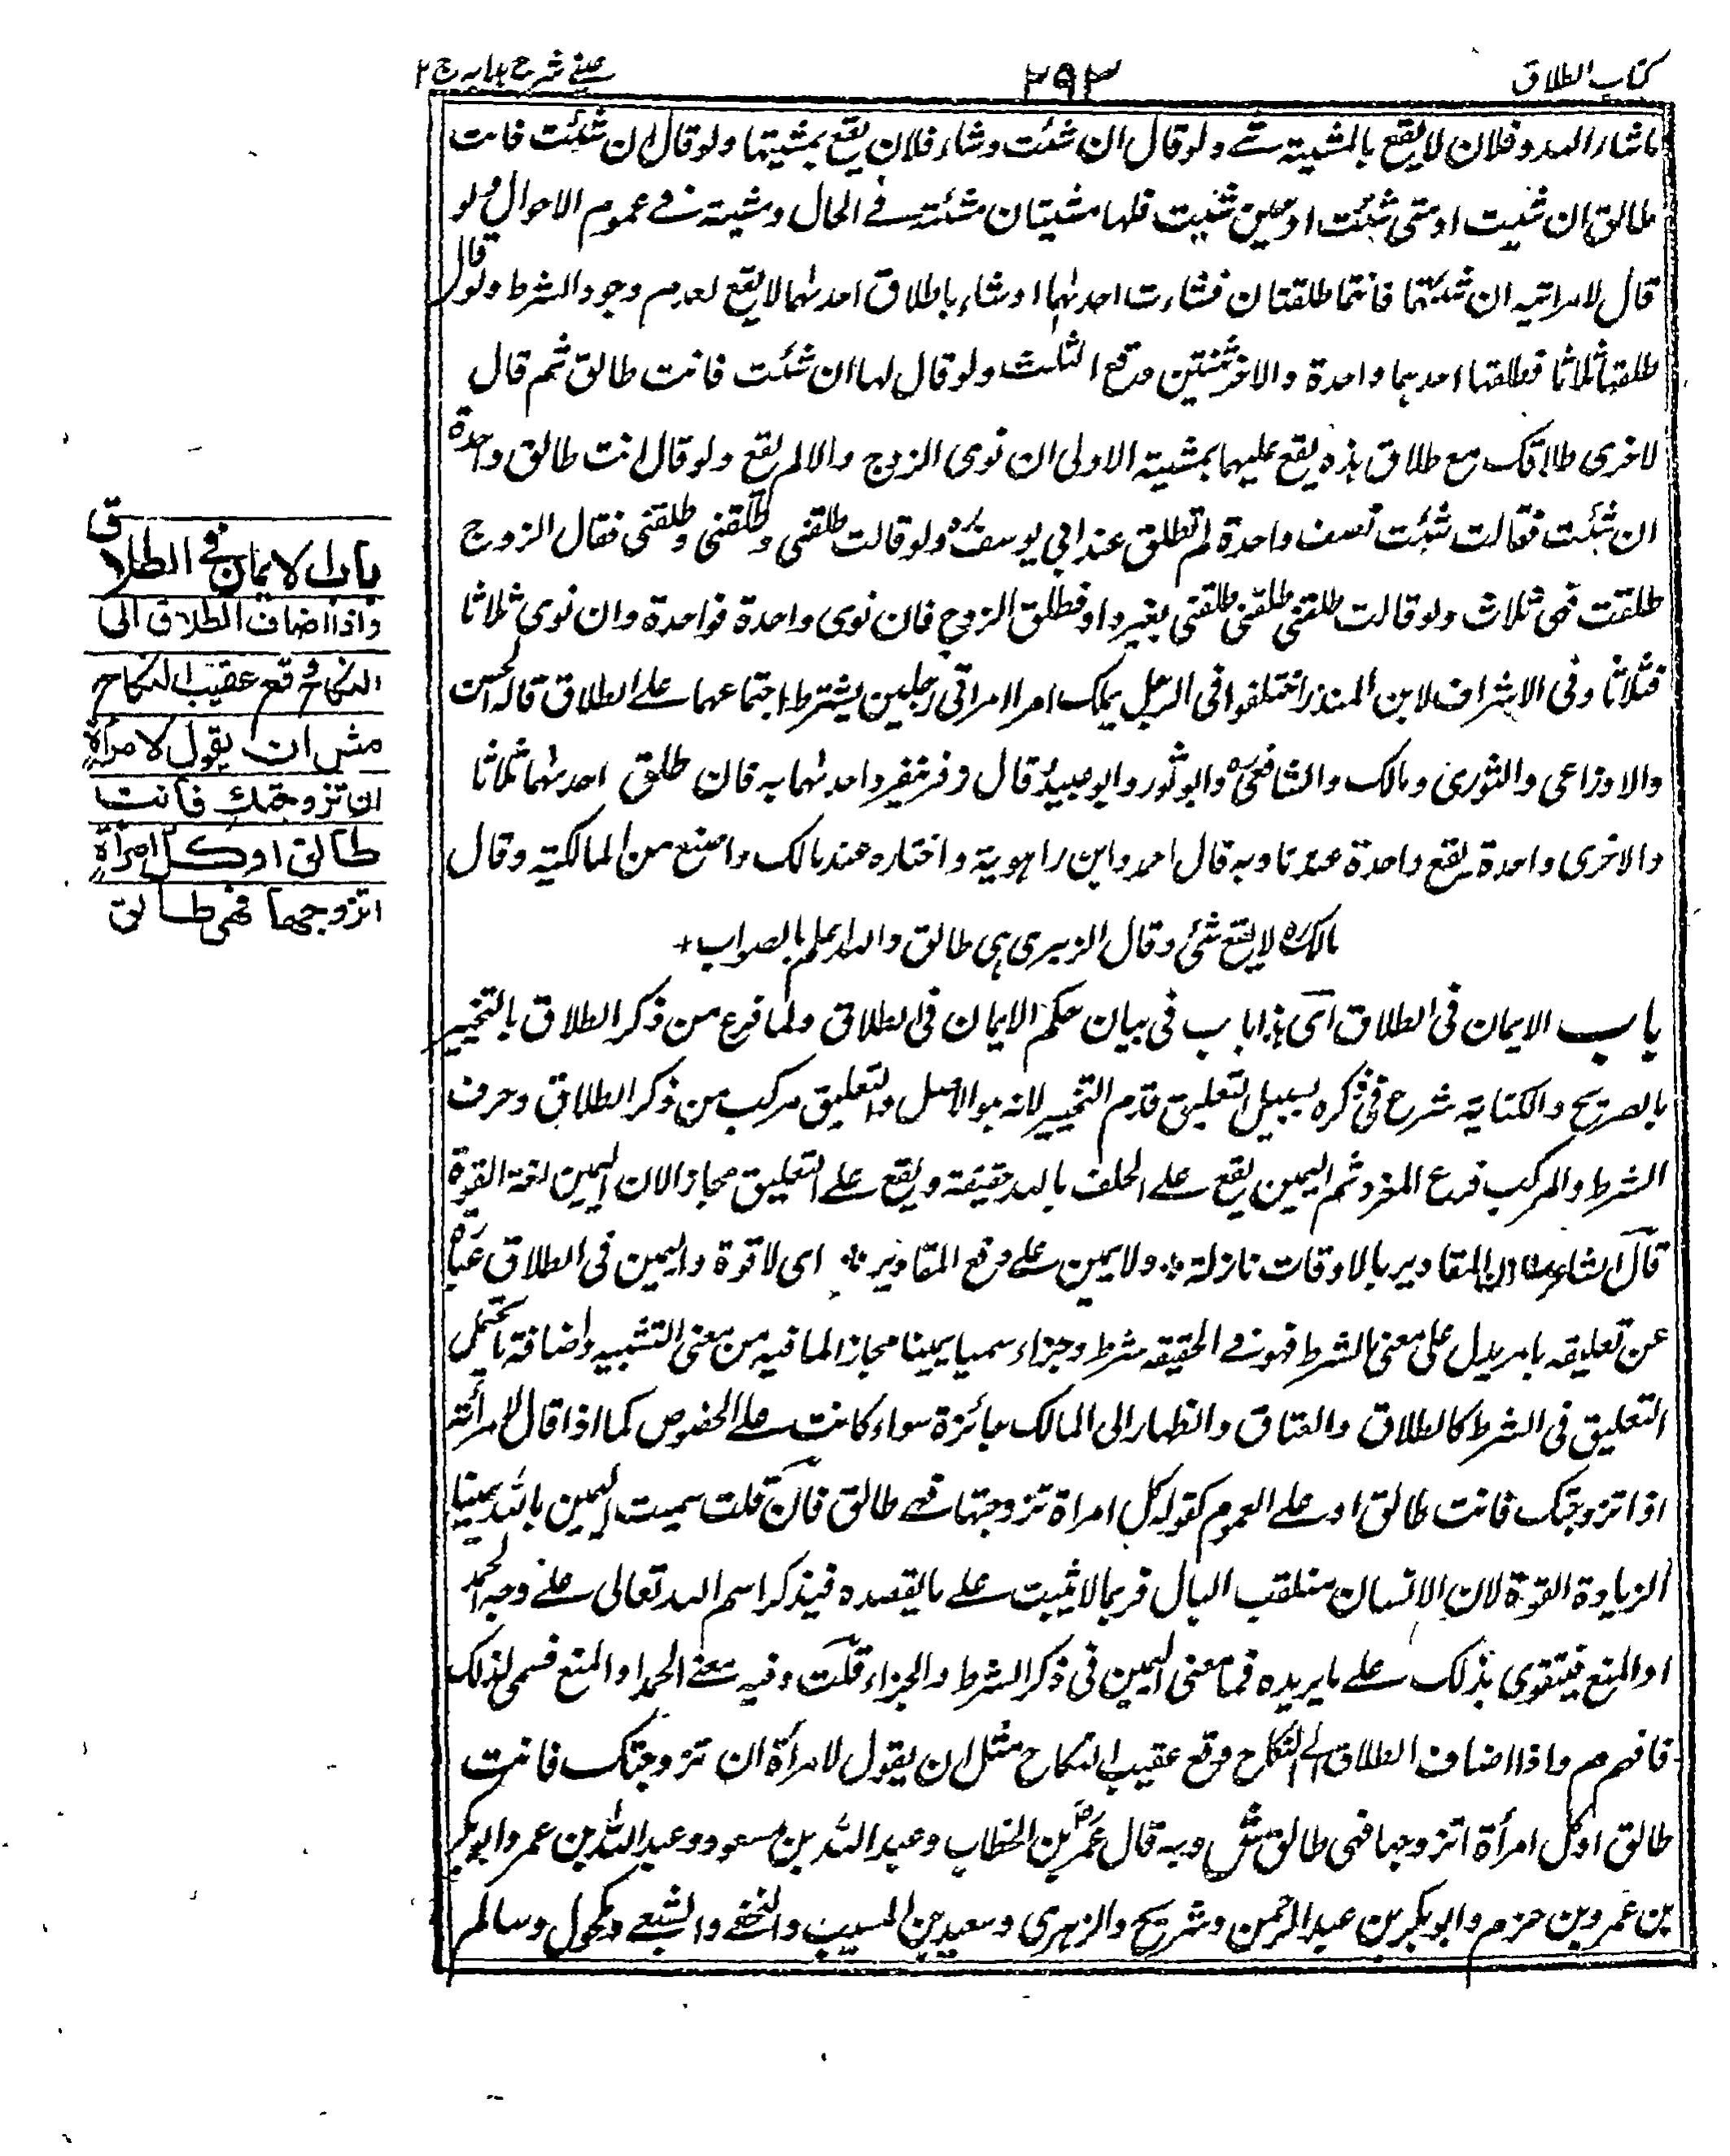 كتاب الطلاق
٢٩٣
عينى شرح هدايه ج ٢
ما شاء الله وفلان لا يقع بالمشيته شے ولو قال ان شئت وشاء فلان يقع بمشيتها ولو قال ان شئت فانت
طالق ان شئت او متى شئت او حين شئت فلها مشيتان مشئته فے الحال ومشيته فے عموم الاحوال ولو
قال لامراتيه ان شئتما فانتما طلقتان فشاءت احدىهما او شاء باطلاق احدىهما لا يقع لعدم وجود الشرط ولو قال
طلقها ثلاثا فطلقها احدهما واحدة والاخر ثنتين وقع الثلث ولو قال لها ان شئت فانت طالق ثم قال
لاخرى طلاقك مع طلاق هذه يقع عليهما بمشيته الاولى ان نوى الزوج والا لم يقع ولو قال انت طالق واحدة
ان شئت فقالت شئت نصف واحدة لم تطلق عند ابى يوسفؒ ولو قالت طلقنى وطلقنى وطلقنى فقال الزوج
طلقت فهى ثلاث ولو قالت طلقنى طلقنى طلقنى بغير واو فطلق الزوج فان نوى واحدة فواحدة وان نوى ثلاثا
فثلاثا وفى الاشراف لابن المنذر اختلفوا فى الرجل يملك امر امراتى رجلين يشترط اجتماعهما علے الطلاق قاله الحسن
والاوزاعى والثورى ومالك والشافعىؒ وابو ثور وابو عبيدؒ قال وفر ينفرد احدىهما به فان طلق احدىهما ثلاثا
والاخرى واحدة يقع واحدة عندنا وبه قال احمد وابن راهوية واختاره عند مالك واصبغ من المالكية وقال
مالكؒ لا يقع شئ وقال الزهرى هى طالق والله اعلم بالصواب +
باب الايمان فى الطلاق اى هذا باب فى بيان حكم الايمان فى الطلاق ولما فرغ من ذكر الطلاق بالتخيير
بالصريح والكناية شرع فى ذكره بسبيل التعليق قدم التخيير لانه هو الاصل والتعليق مركب من ذكر الطلاق وحرف
الشرط والمركب فرع المفرد ثم اليمين يقع علے الحلف بالله حقيقة ويقع علے التعليق مجازا لان اليمين لغة القوة
قال الشاعر ان المقادير بالاوقات نازلة ÷ ولا يمين علے دفع المقادير ÷ اى لا قوة واليمين فى الطلاق عبارة
عن تعليقه بامر يدل على معنى الشرط فهو فے الحقيقه شرط وجزاء سمى يمينا مجازا لما فيه من معنى التشبيه واضافة ما يحتمل
التعليق فى الشرط كالطلاق والعتاق والظهار الى المالك جائزة سواء كانت علے الخصوص كما اذا قال لامرأته
اذا تزوجتك فانت طالق او علے العموم كقوله كل امراة تزوجتها فهے طالق فان قلت سميت اليمين بالله يمينا
لزيادة القوة لان الانسان متقلب البال فربما لا يثبت علے ما يقصده فيذكر اسم الله تعالى علے وجه الحمد
او المنع فيتقوى بذلك علے ما يريده فما معنى اليمين فى ذكر الشرط والجزاء قلت وفيه معنے الحمد او المنع فسمى لذلك
فافهم م واذا اضاف الطلاق الى النكاح وقع عقيب النكاح مثل ان يقول لامرأة ان تزوجتك فانت
طالق او كل امرأة اتزوجها فهى طالق ش وبه قال عمرؓ بن الخطاب وعبد الله بن مسعود وعبد الله بن عمر وابو بكر
بن عمرو بن حزم وابو بكر بن عبد الرحمن وشريح والزهرى وسعيد بن المسيب والنخعے والشعبے ومكحول وسالم
باب الايمان فى الطلاق
واذا اضاف الطلاق الى
النكاح وقع عقيب النكاح
مثل ان يقول لامرأة
ان تزوجتك فانت
طالق او كل امرأة
اتزوجها فهى طالق